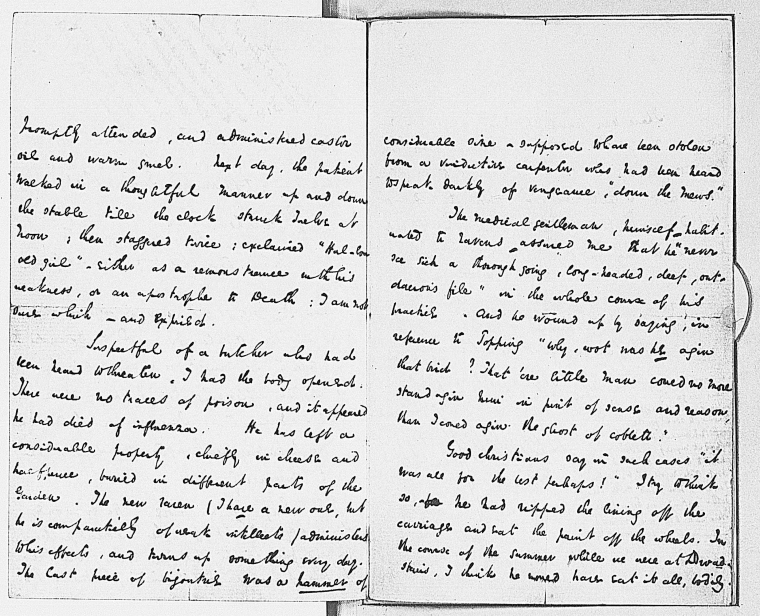 promptly attended, and administered castor
oil and warm gruel. Next day, the patient
walked in a thoughtful manner up and down
the stable till the clock struck Twelve at
Noon; then staggered twice; exclaimed "Hal-loa
old girl" – either as a remonstrance with his
weakness, or an apostrophe to Death: I am not
sure which – and expired.
Suspectful of a butcher who had
been heard to threaten, I had the body opened.
There were no traces of poison, and it appeared
he had died of influenza. He has left a
considerable property, chiefly in cheese and
halfpence, buried in different parts of the
Garden. The new raven (I have a new one, but
he is comparatively of weak intellects) administered
to his effects, and turns up something every day.
The last piece of bijouterie was a hammer of
considerable size – supposed to have been stolen
from a vindictive carpenter who had been heard
to speak darkly of vengeance, "down the mews."
The medical gentleman, himself habit-
uated to Ravens – assured me that he "never
see sich a thorough going, long-headed, deep, out-
dacious file" in the whole course of his
practice. And he wound up by saying, in
reference to Topping "why, wot was he agin
that bird? That 'ere little man coued no more
stand agin him in pint of sense and reason,
than I coued agin the ghost of Cobbett."
Good christians say in such cases "it
was all for the best perhaps!" I try to think
so, – he had ripped the lining off the
carriages and eat the paint off the wheels. In
the course of the summer while we were at Broad-
stairs, I think he would have eat it all, bodily.